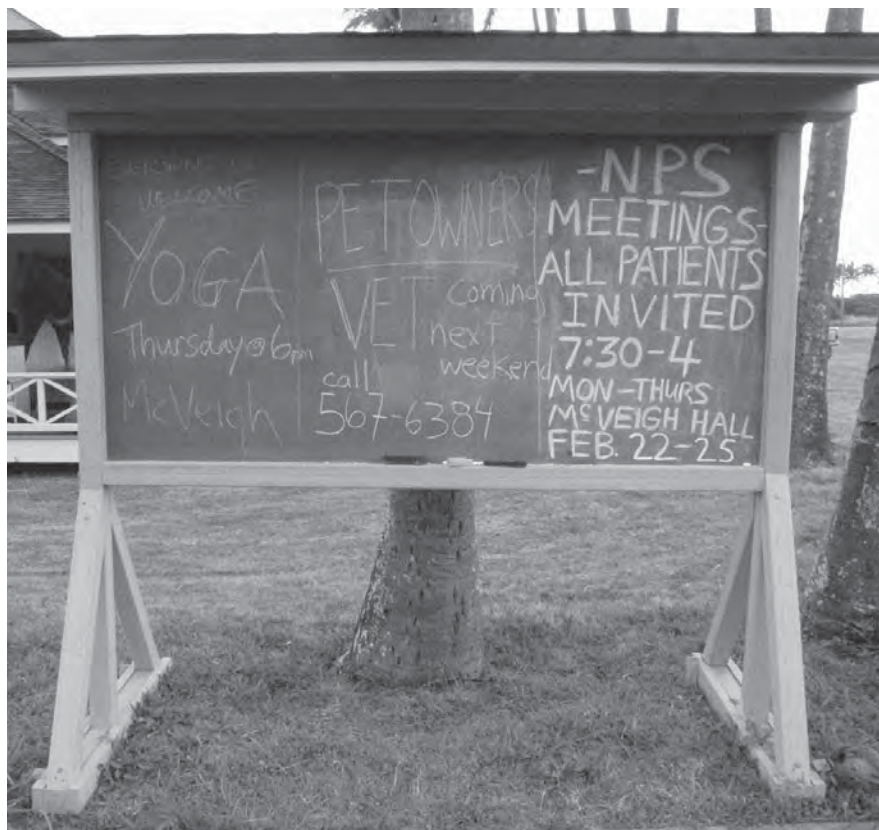 EVERYONE IS
WELCOME
YOGA
Thursday @ 6pm
McVeigh
PET OWNERS
VET coming
next
weekend
call
567-6384
-NPS
MEETINGS-
ALL PATIENTS
INVITED
7:30-4
MON-THURS
McVEIGH HALL
FEB. 22-25